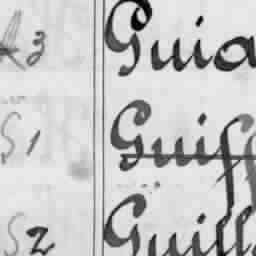 A3 Guia
S1 Guiff
S2 Guill